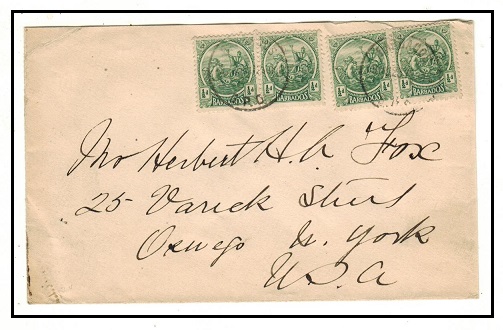 ½d ½d ½d ½d
BARBADOS BARBADOS BARBADOS BARBADOS
P.O.
Mr Herbert H. A. Fox
25 Varick Street
Oswego N. York
U.S.A